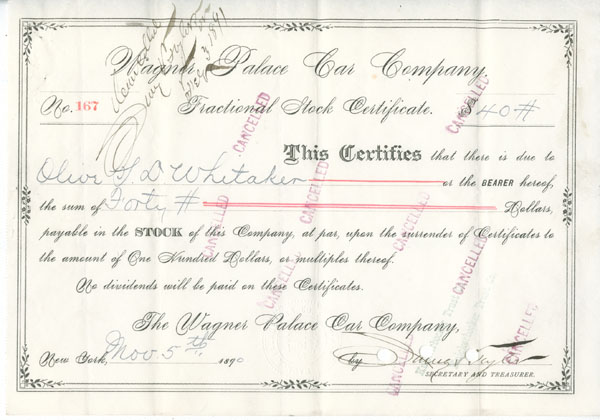 Dec 3 1891
Wagner Palace Car Company.
No. 167 Fractional Stock Certificate. $ 40 #
This Certifies that there is due to
Olive G. D Whitaker or the BEARER hereof,
the sum of Forty # Dollars,
payable in the STOCK of this Company, at par, upon the surrender of Certificates to
the amount of One Hundred Dollars, or multiples thereof.
No dividends will be paid on these Certificates.
The Wagner Palace Car Company,
New York, Nov. 5th, 1890 by
SECRETARY AND TREASURER.
CANCELLED
CANCELLED
CANCELLED
CANCELLED
CANCELLED
CANCELLED
CANCELLED
CANCELLED
CANCELLED